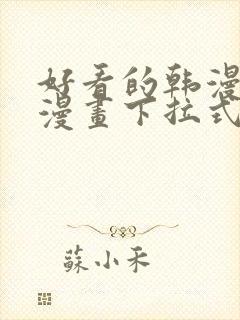 好看的韩漫
漫畫下拉式
蘇小禾